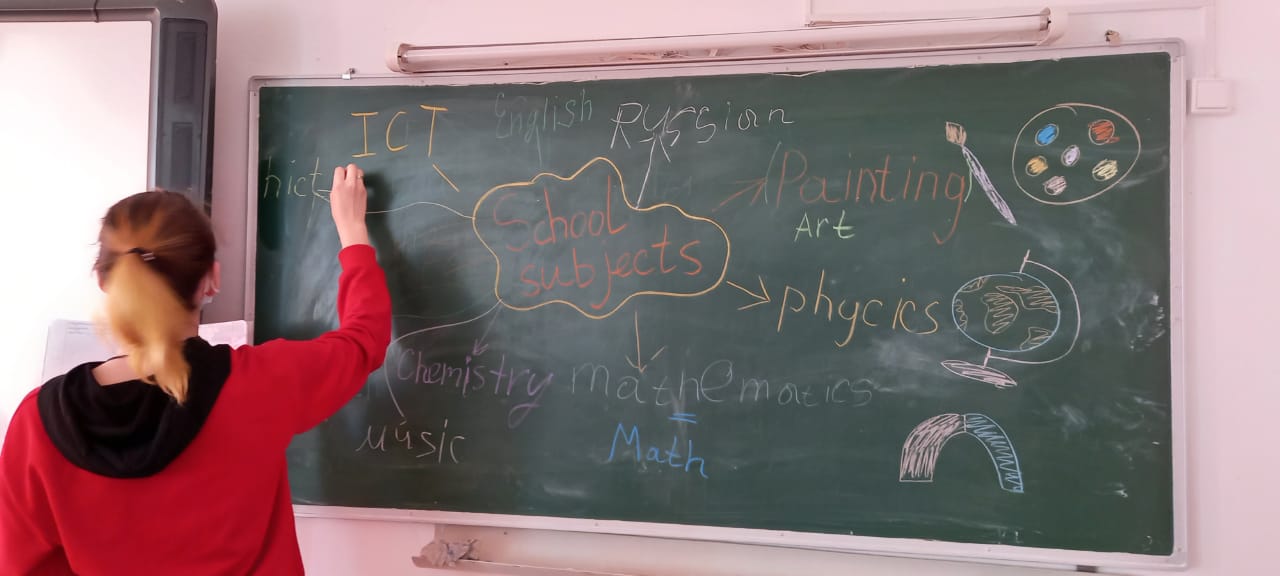 ICT
English
Ryssian
hict
School
subjects
(Painting)
Art
phycics
Chemistry
mathematics
Music
Math